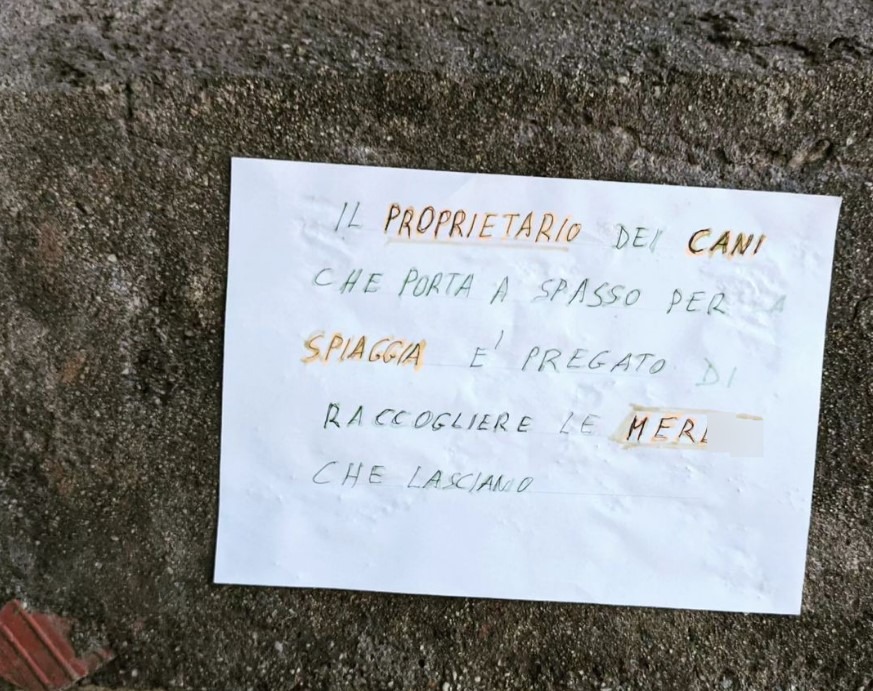 IL PROPRIETARIO DEI CANI
CHE PORTA A SPASSO PER LA
SPIAGGIA E' PREGATO DI
RACCOGLIERE LE
CHE LASCIANO